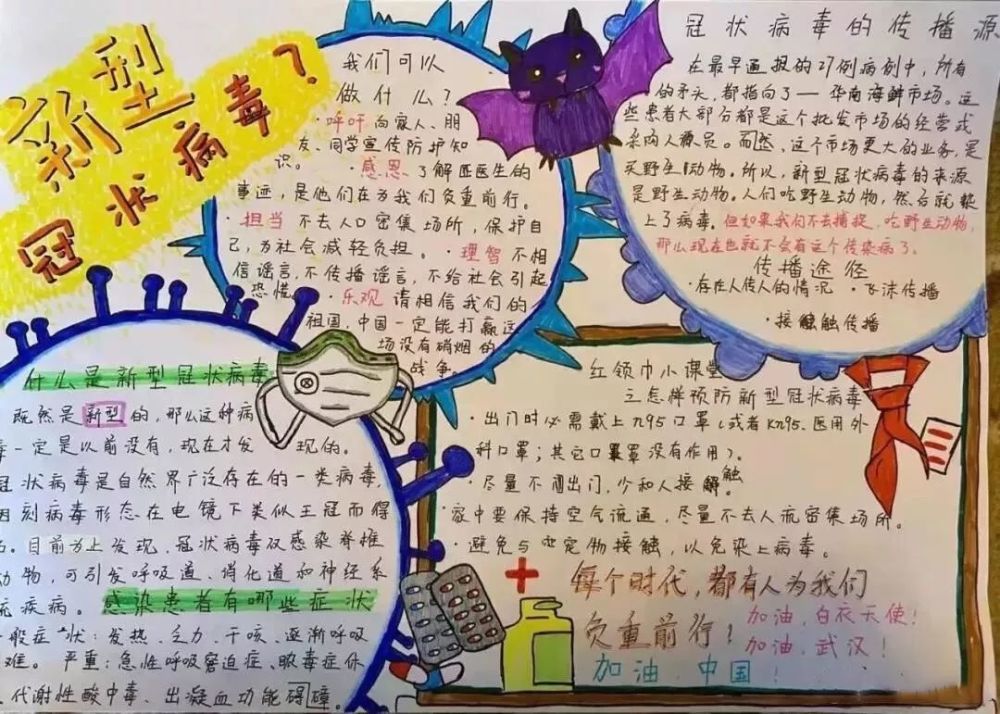 新型
冠状病毒？
我们可以
做什么？
·呼吁向家人、朋
友、同学宣传防护知
识。
·感恩了解医生的
事迹，是他们在为我们负重前行。
·担当不去人口密集场所，保护自
己，为社会减轻负担。·理智不相
信谣言，不传播谣言，不给社会引起
恐慌。·乐观请相信我们的
祖国，中国一定能打赢这
场没有硝烟的
战争。
冠状病毒的传播源
在最早通报的27例病例中，所有
的矛头，都指向了——华南海鲜市场。这
些患者大部分都是这个批发市场的经营或
采购人员。而然，这个市场更大的业务，是
买野生动物。所以，新型冠状病毒的来源
是野生动物。人们吃野生动物，然后就染
上了病毒。但如果我们不去捕捉，吃野生动物，
那么现在也就不会有这个传染病了。
传播途径
·存在人传人的情况·飞沫传播
·接触传播
什么是新型冠状病毒
既然是新型的，那么这种病
毒一定是以前没有，现在才发现的。
冠状病毒是自然界广泛存在的一类病毒
因刻病毒形态在电镜下类似王冠而得
名。目前为止发现，冠状病毒双感染脊椎
动物，可引发呼吸道、消化道和神经系
统疾病。感染患者有哪些症状
一般症状：发热、乏力、干咳、逐渐呼吸
难。严重：急性呼吸窘迫症、脓毒症休
代谢性酸中毒、出凝血功能碍障。
红领巾小课堂
之怎样预防新型冠状病毒
·出门时必需戴上n95口罩（或者Kn95、医用外
科口罩；其它口罩没有作用）。
·尽量不闯出门，少和人接触
·家中要保持空气流通，尽量不去人流密集场所。
·避免与宠物接触，以免染上病毒。
每个时代，都有人为我们
负重前行！
加油，白衣天使！
加油，武汉！
加油，中国！